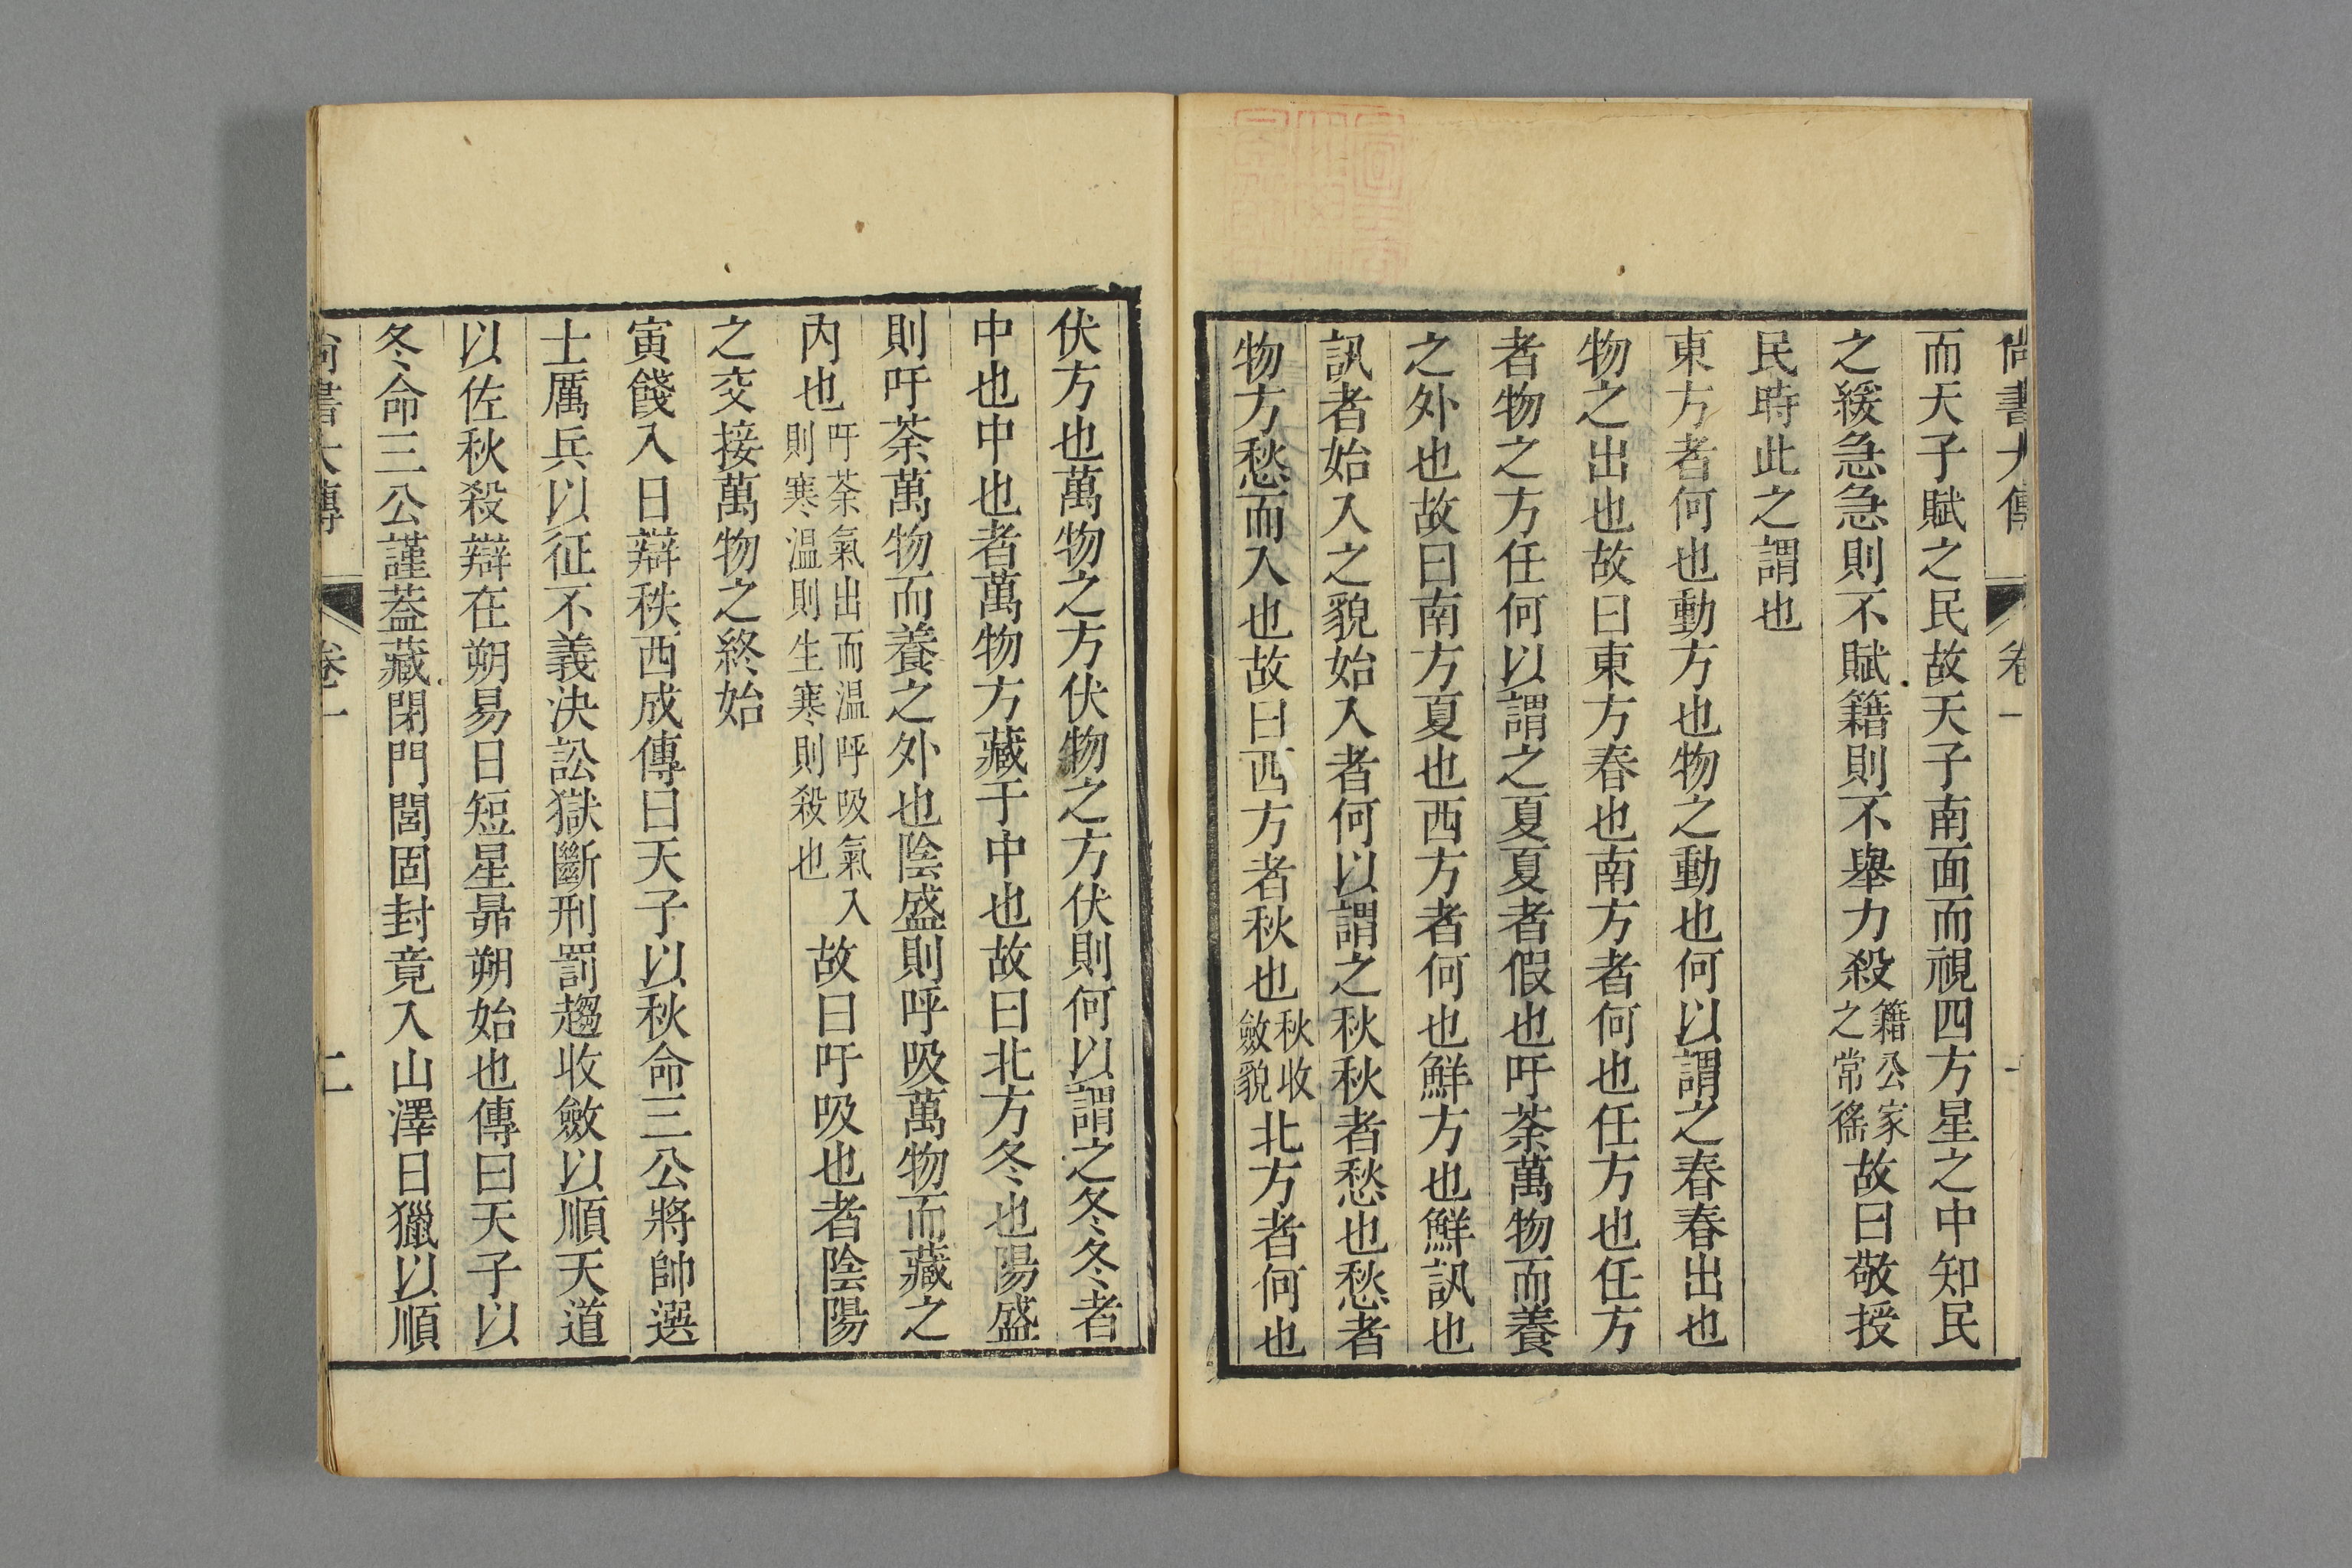 尚書大傳 卷一
而天子賦之民故天子南面而視四方星之中知民
之緩急急則不賦籍則不舉力殺籍公家之常徭故曰敬授
民時此之謂也
東方者何也動方也物之動也何以謂之春春出也
物之出也故曰東方春也南方者何也任方也任方
者物之方任何以謂之夏夏者假也吁荼萬物而養
之外也故曰南方夏也西方者何也鮮方也鮮訊也
訊者始入之貌始入者何以謂之秋秋者愁也愁者
物方愁而入也故曰西方者秋也秋收斂貌北方者何也
伏方也萬物之方伏物之方伏則何以謂之冬冬者
中也中也者萬物方藏于中也故曰北方冬也陽盛
則吁荼萬物而養之外也陰盛則呼吸萬物而藏之
內也吁荼氣出而温呼吸氣入則寒温則生寒則殺也故曰吁吸也者陰陽
之交接萬物之終始
寅餞入日辯秩西成傳曰天子以秋命三公將帥選
士厲兵以征不義決訟獄斷刑罰趨收斂以順天道
以佐秋殺辯在朔易日短星昴朔始也傳曰天子以
冬命三公謹蓋藏閉門閭固封竟入山澤日獵以順
尚書大傳 卷一 二